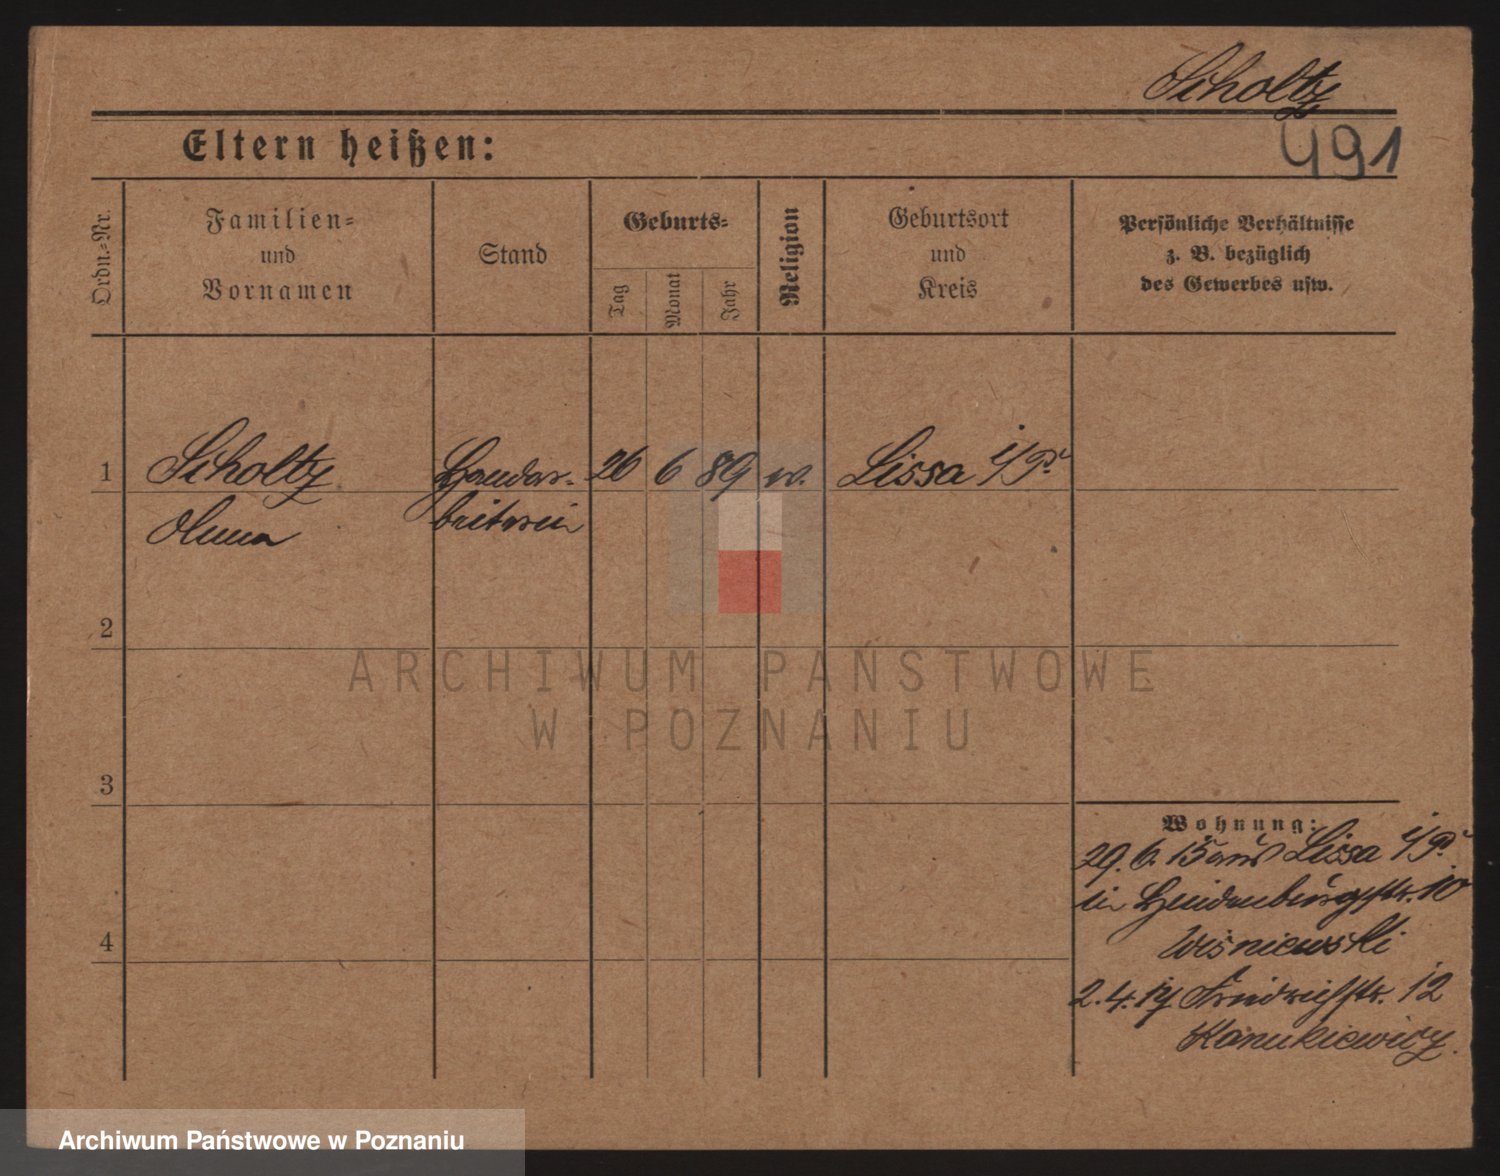 Scholtz
491
Eltern heißen:
Ordn.=Nr.
Familien=
und
Vornamen
Stand
Geburts=
Tag
Monat
Jahr
Religion
Geburtsort
und
Kreis
Persönliche Verhältnisse
z. B. bezüglich
des Gewerbes usw.
1 Scholtz Handar- 26 6 89 w. Lissa i/P.
Anna beiterin
2
3
4
Wohnung:
29. 6. 15 aus Lissa i/P.
in Hindenburgstr. 10
Wisniewski
2. 4. 17 Friedrichstr. 12
ARCHIWUM PAŃSTWOWE
W POZNANIU
Archiwum Państwowe w Poznaniu